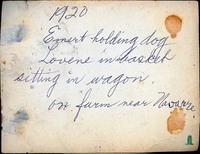 1920
Emert holding dog
Lovene in basket
sitting in wagon
on farm near Navarre